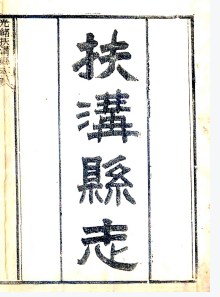 扶溝縣志
光緒扶溝縣志